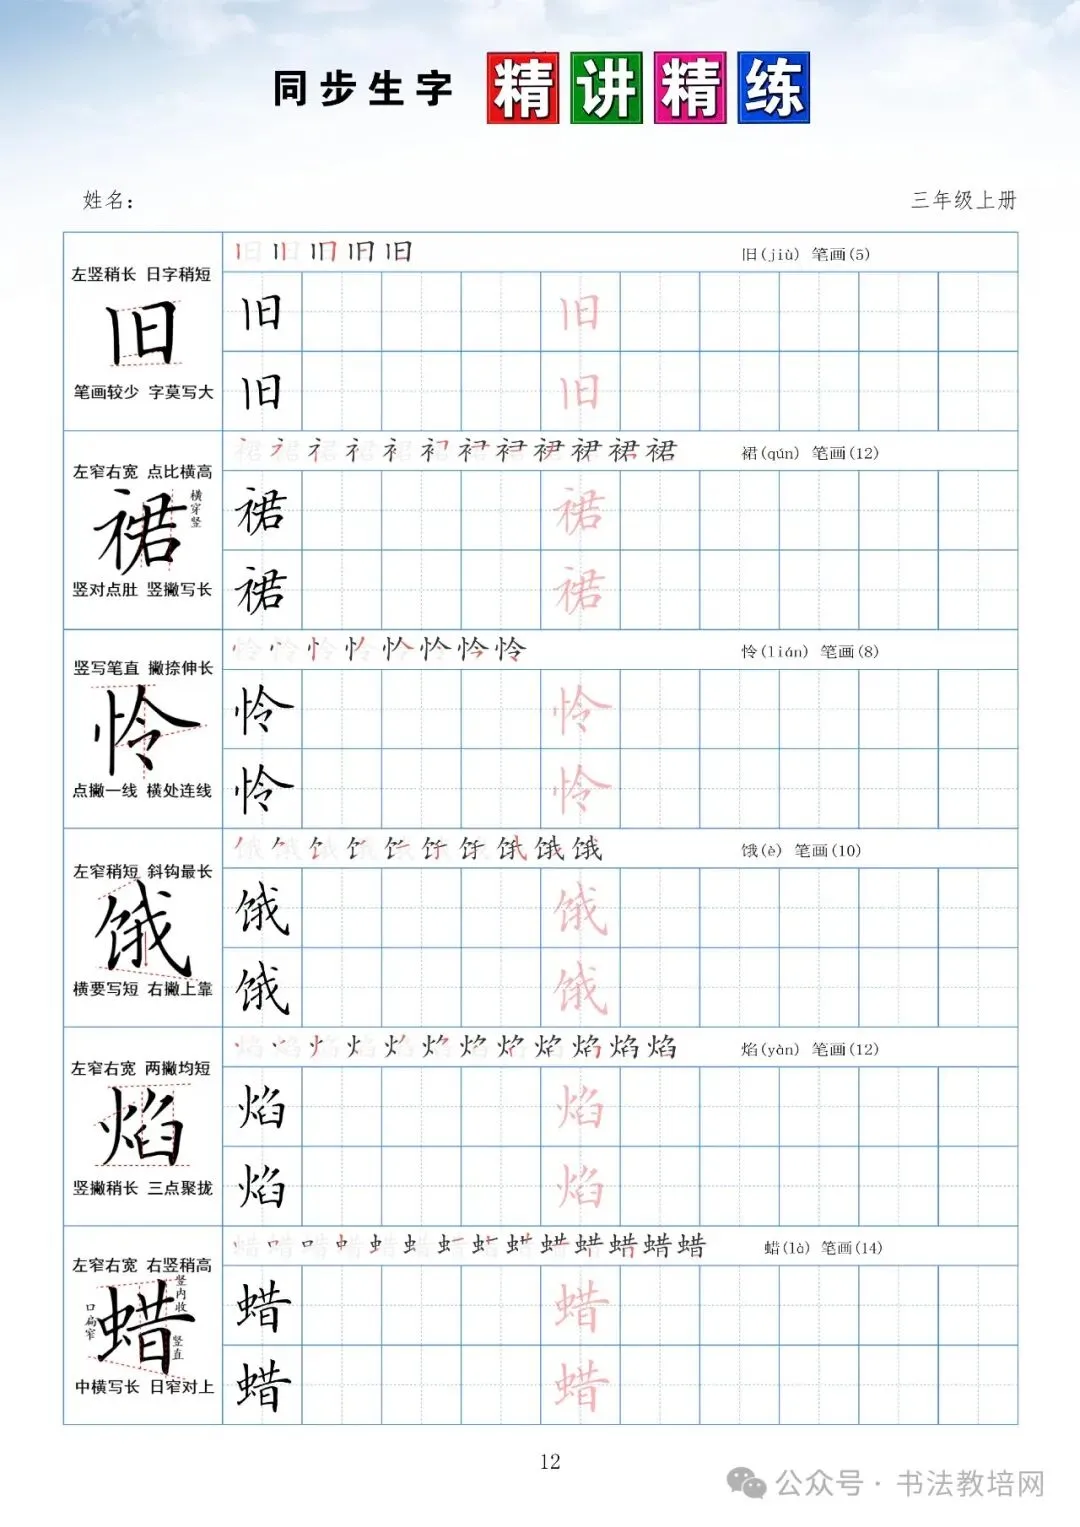 同步生字 精讲精练
姓名：
三年级上册
左竖稍长 日字稍短
旧
笔画较少 字莫写大
旧(jiù) 笔画(5)
旧 旧
旧 旧
左窄右宽 点比横高
裙
横穿竖
竖对点肚 竖撇写长
裙(qún) 笔画(12)
裙 裙
裙 裙
竖写笔直 撇捺伸长
怜
点撇一线 横处连线
怜(lián) 笔画(8)
怜 怜
怜 怜
左窄稍短 斜钩最长
饿
横要写短 右撇上靠
饿(è) 笔画(10)
饿 饿
饿 饿
左窄右宽 两撇均短
焰
竖撇稍长 三点聚拢
焰(yàn) 笔画(12)
焰 焰
焰 焰
左窄右宽 右竖稍高
蜡
竖内收
口扁窄
竖直
中横写长 日窄对上
蜡(là) 笔画(14)
蜡 蜡
蜡 蜡
12
公众号·书法教培网